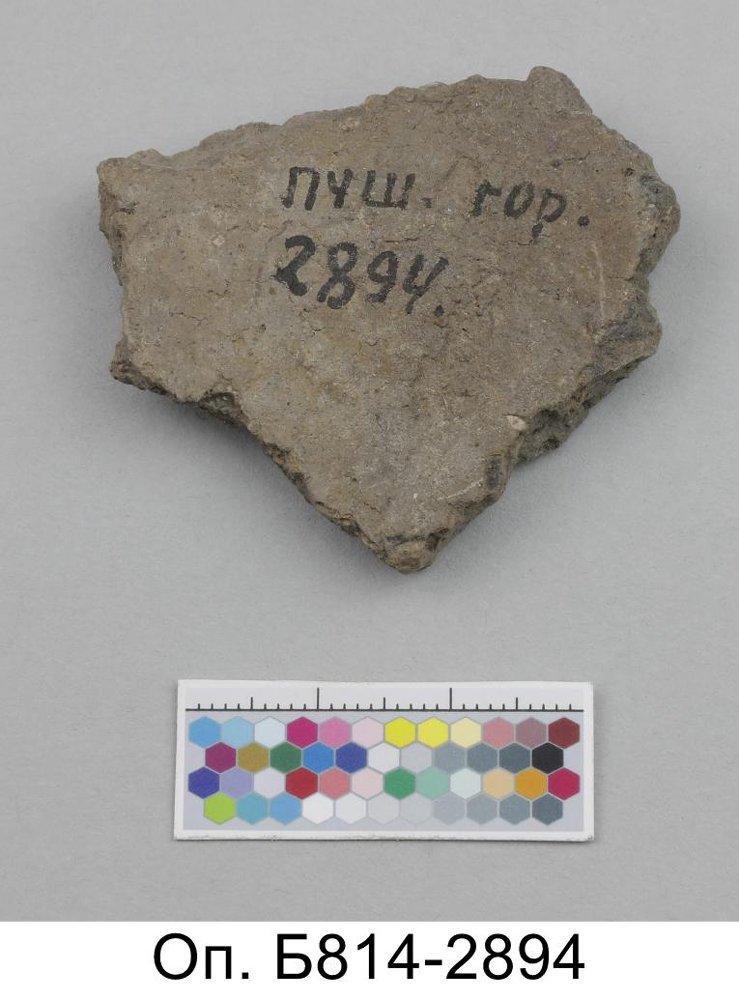 пчш. гор.
2894.
Оп. Б814-2894